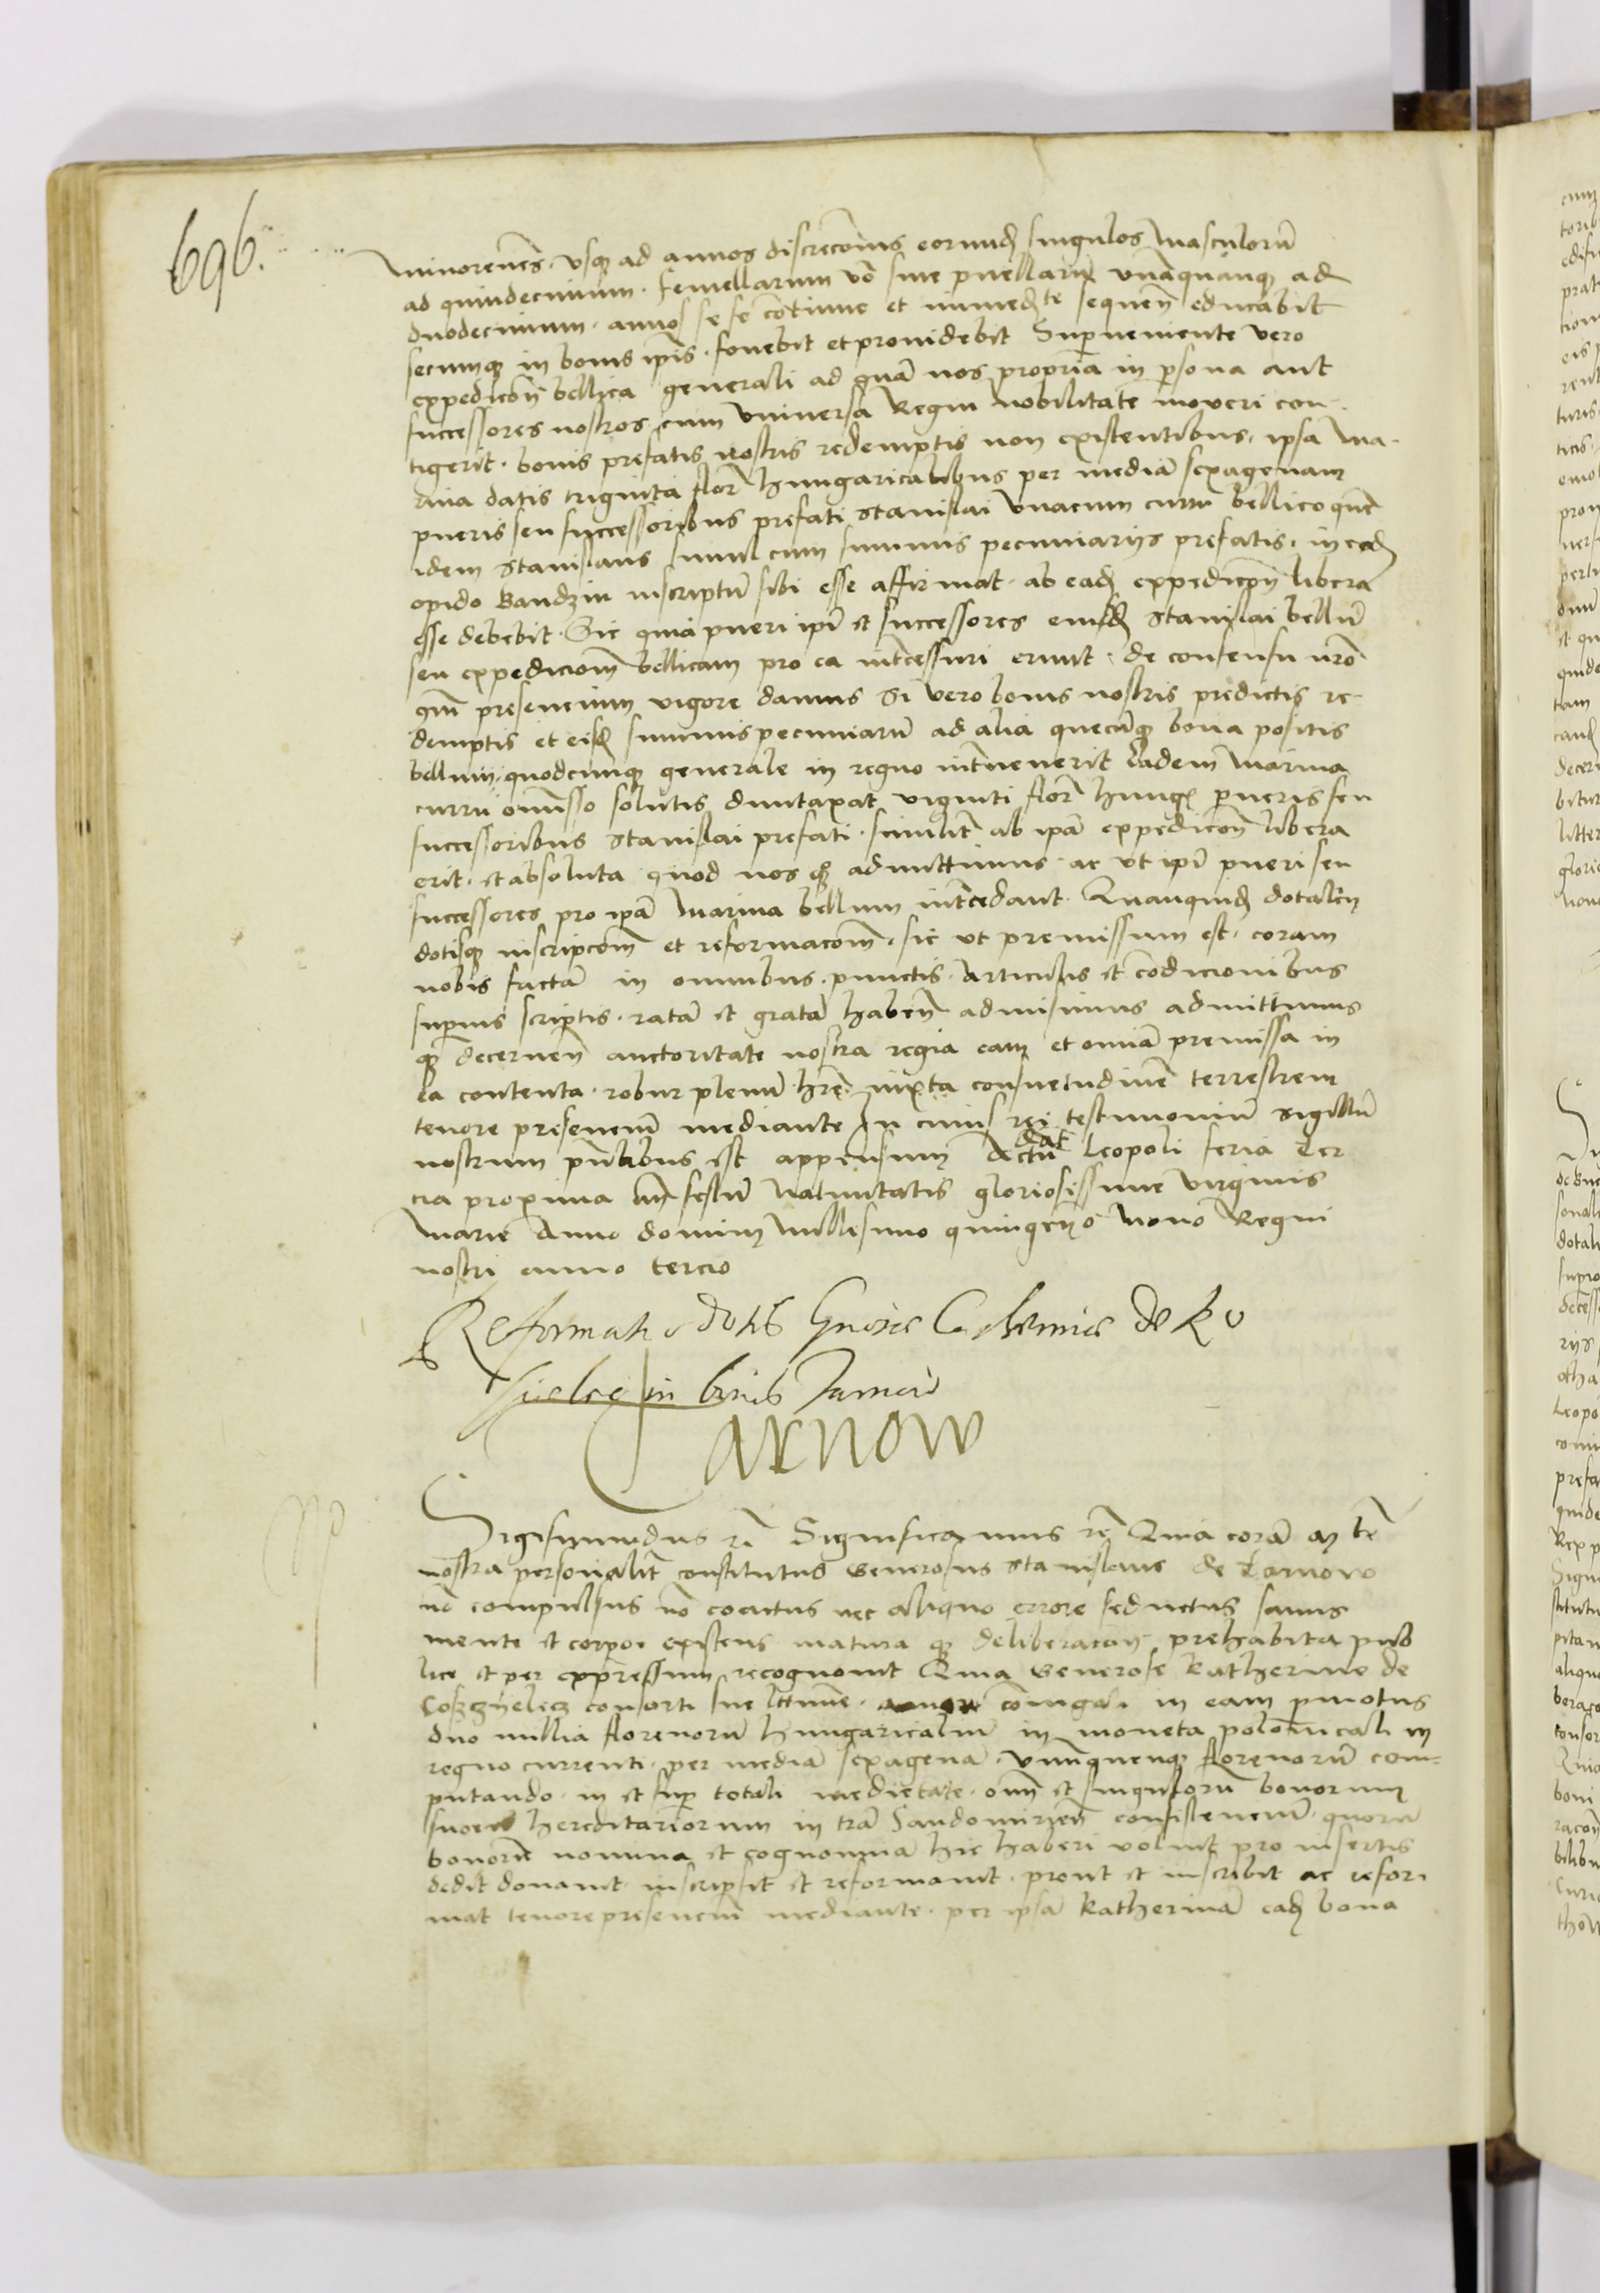 696.
minorenes. usq ad annos discrecionis eorund singulos masculorū
ad quindecimum. femellarum vō sive puellarū unāquanq ad
duodecimum. annos se se cōtinue et immedte sequen educabit
secumq in bonis ipīs. fovebit et providebit Superveniente vero
expedicōn bellica generali ad quā nos propria in persona aut
successores nostros cum universa Regni nobilitate moveri con-
tigerit. bonis prefatis nostris redemptis non existentibus. ipsa Ma-
rina datis triginta flor hungaricalibus per mediā sexagenam
pueris seu successoribus prefati Stanislai unacum curru bellico quē
idem Stanislaus simul cum summis pecuniariis prefatis. in eod
opido Bandzin inscriptū sibi esse affirmat. ab ead expedicōn libera
esse debebit. Sic quia pueri ipī et successores eiusd Stanislai bellū
seu expedicionem bellicam pro ea intcessuri erunt. de consensu nrō
quē presencium vigore damus Si vero bonis nostris predictis re-
demptis et eisd summis pecuniarū ad alia quecūq bona positis
bellum quodcunq generale in regno intervenerit Eadem Marina
curru omisso solutis duntaxat viginti flor hung pueris seu
successoribus Stanislai prefati. similit ab ipa expedicōn libera
erit. et absoluta quod nos q admittimus. ac ut ipī pueri seu
successores pro ipa Marina bellum intcedant. Quanquid dotalem
dotisq inscripcōm et reformacōm. sic ut premissum est. coram
nobis factā in omnibus. punctis. articulis et cōdicionibus
superius scriptis. ratā et gratā haben admisimus admittimus
q decernen auctoritate nostra regia eam et omīa premissa in
ea contenta. robur plenū hrē. iuxta consuetudinē terrestrem
tenore presencium mediante In cuius rei testimoniū sigillū
nostrum pntibus est appensum Actū dat Leopoli feria ter
cia proxima an festū nativitatis gloriosissime virginis
Marie Anno domini millesimo quingen o nono Regni
nostri anno tercio
Reformatio dotis Gnose Catherine de Ko
in bonis Tarnow
Tarnow
Sigismundus rī Significamus rē Quia corā m te
nostra personalit constitutus Generosus Stanislaus de Tarnow
nō compulsus nō coactus nec aliquo errore seductus sanus
mente et corpore existens matura q deliberacōn prehabita pub
lice et per expressum recognovit Quia Generose Katherine de
consorti sue lttime. amore cōiugali in eam pmotus
duo millia florenorū hungaricaliū in moneta polonicali in
regno currenti. per mediā sexagenā. unūquenq florenorū com-
putando. in et sup totali medietate. omī et singulorū bonorum
suorū hereditariorum in trā Sandomirien consistenciū. quorū
bonorū nomina et cognomina hic haberi voluit pro insertis
dedit donavit inscripsit et reformavit. prout et inscribit ac refor
mat tenore presencium mediante. per ipsā Katherinā ead bona